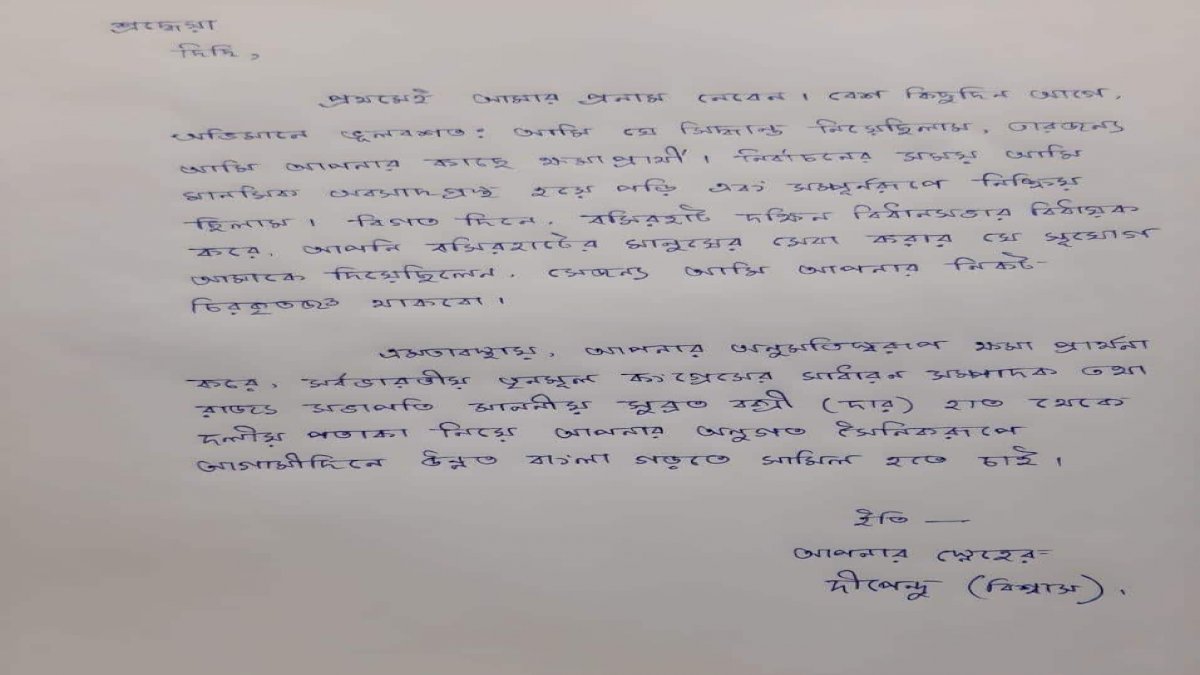 শ্রদ্ধেয়া
দিদি,
প্রথমেই আমার প্রনাম নেবেন। বেশ কিছুদিন আগে,
অভিমানে ভুলবশতঃ আমি যে সিদ্ধান্ত নিয়েছিলাম, তারজন্য
আমি আপনার কাছে ক্ষমাপ্রার্থী। নির্বাচনের সময় আমি
মানসিক অবসাদগ্রস্থ হয়ে পড়ি এবং সম্পূর্নরূপে নিষ্ক্রিয়
ছিলাম। বিগত দিনে, বসিরহাট দক্ষিন বিধানসভার বিধায়ক
করে, আপনি বসিরহাটের মানুষের সেবা করার যে সুযোগ
আমাকে দিয়েছিলেন, সেজন্য আমি আপনার নিকট-
চিরকৃতজ্ঞ থাকবো।
এমতাবস্থায়, আপনার অনুমতিস্বরূপ ক্ষমা প্রার্থনা
করে, সর্বভারতীয় তৃনমূল কংগ্রেসের সাধারন সম্পাদক তথা
রাজ্য সভাপতি মাননীয় সুব্রত বক্সী (দার) হাত থেকে
দলীয় পতাকা নিয়ে আপনার অনুগত সৈনিকরূপে
আগামীদিনে উন্নত বাংলা গড়তে সামিল হতে চাই।
ইতি —
আপনার স্নেহের-
দীপেন্দু (বিশ্বাস).